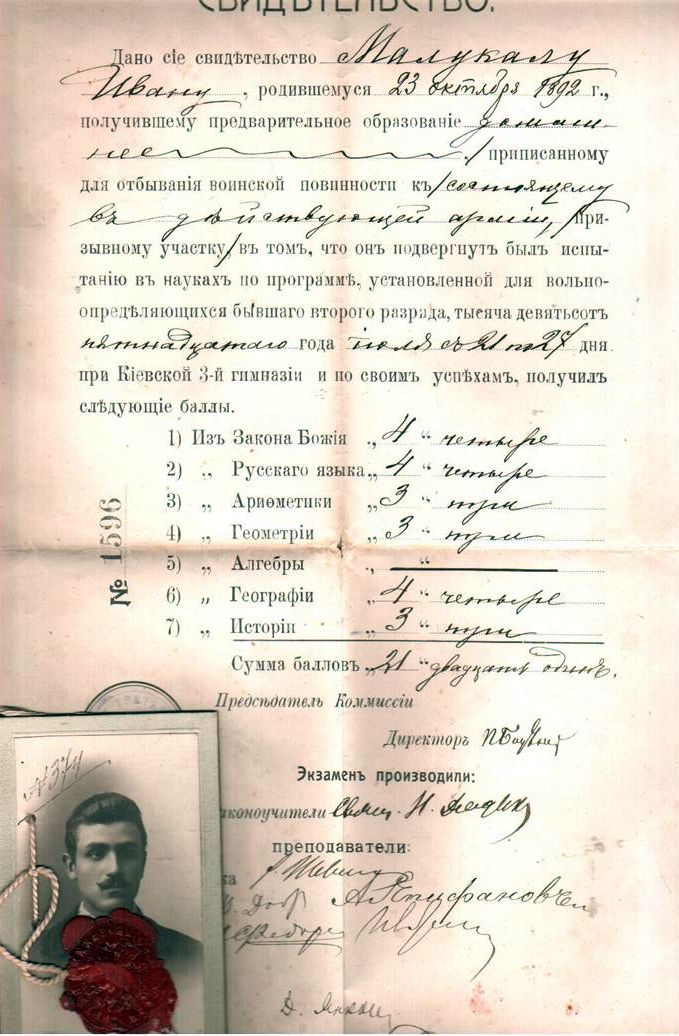 СВИДѢТЕЛЬСТВО.
Дано сіе свидѣтельство Малукалу
Ивану, родившемуся 23 октября 1892 г.,
получившему предварительное образованіе домаш
нее, приписанному
для отбыванія воинской повинности къ/состоящему
въ дѣйствующей арміи,/при-
зывному участку/въ томъ, что онъ подвергнутъ былъ испы-
танію въ наукахъ по программѣ, установленной для вольно-
опредѣляющихся бывшаго второго разряда, тысяча девятьсотъ
пятнадцатаго года іюля съ 21 по 27 дня
при Кіевской 3-й гимназіи и по своимъ успѣхамъ, получилъ
слѣдующіе баллы.
1) Изъ Закона Божія „4“ четыре
2) „ Русскаго языка „4“ четыре
3) „ Ариѳметики „3“ три
4) „ Геометріи „3“ три
5) „ Алгебры „ — “
6) „ Географіи „4“ четыре
7) „ Исторіи „3“ три
Сумма балловъ „21“ двадцать одинъ.
№ 1596
Предсѣдатель Коммиссіи
Директоръ
Экзаменъ производили:
аконоучители Свящ. Н.
преподаватели:
А. Епифановъ
№ 374
Д.